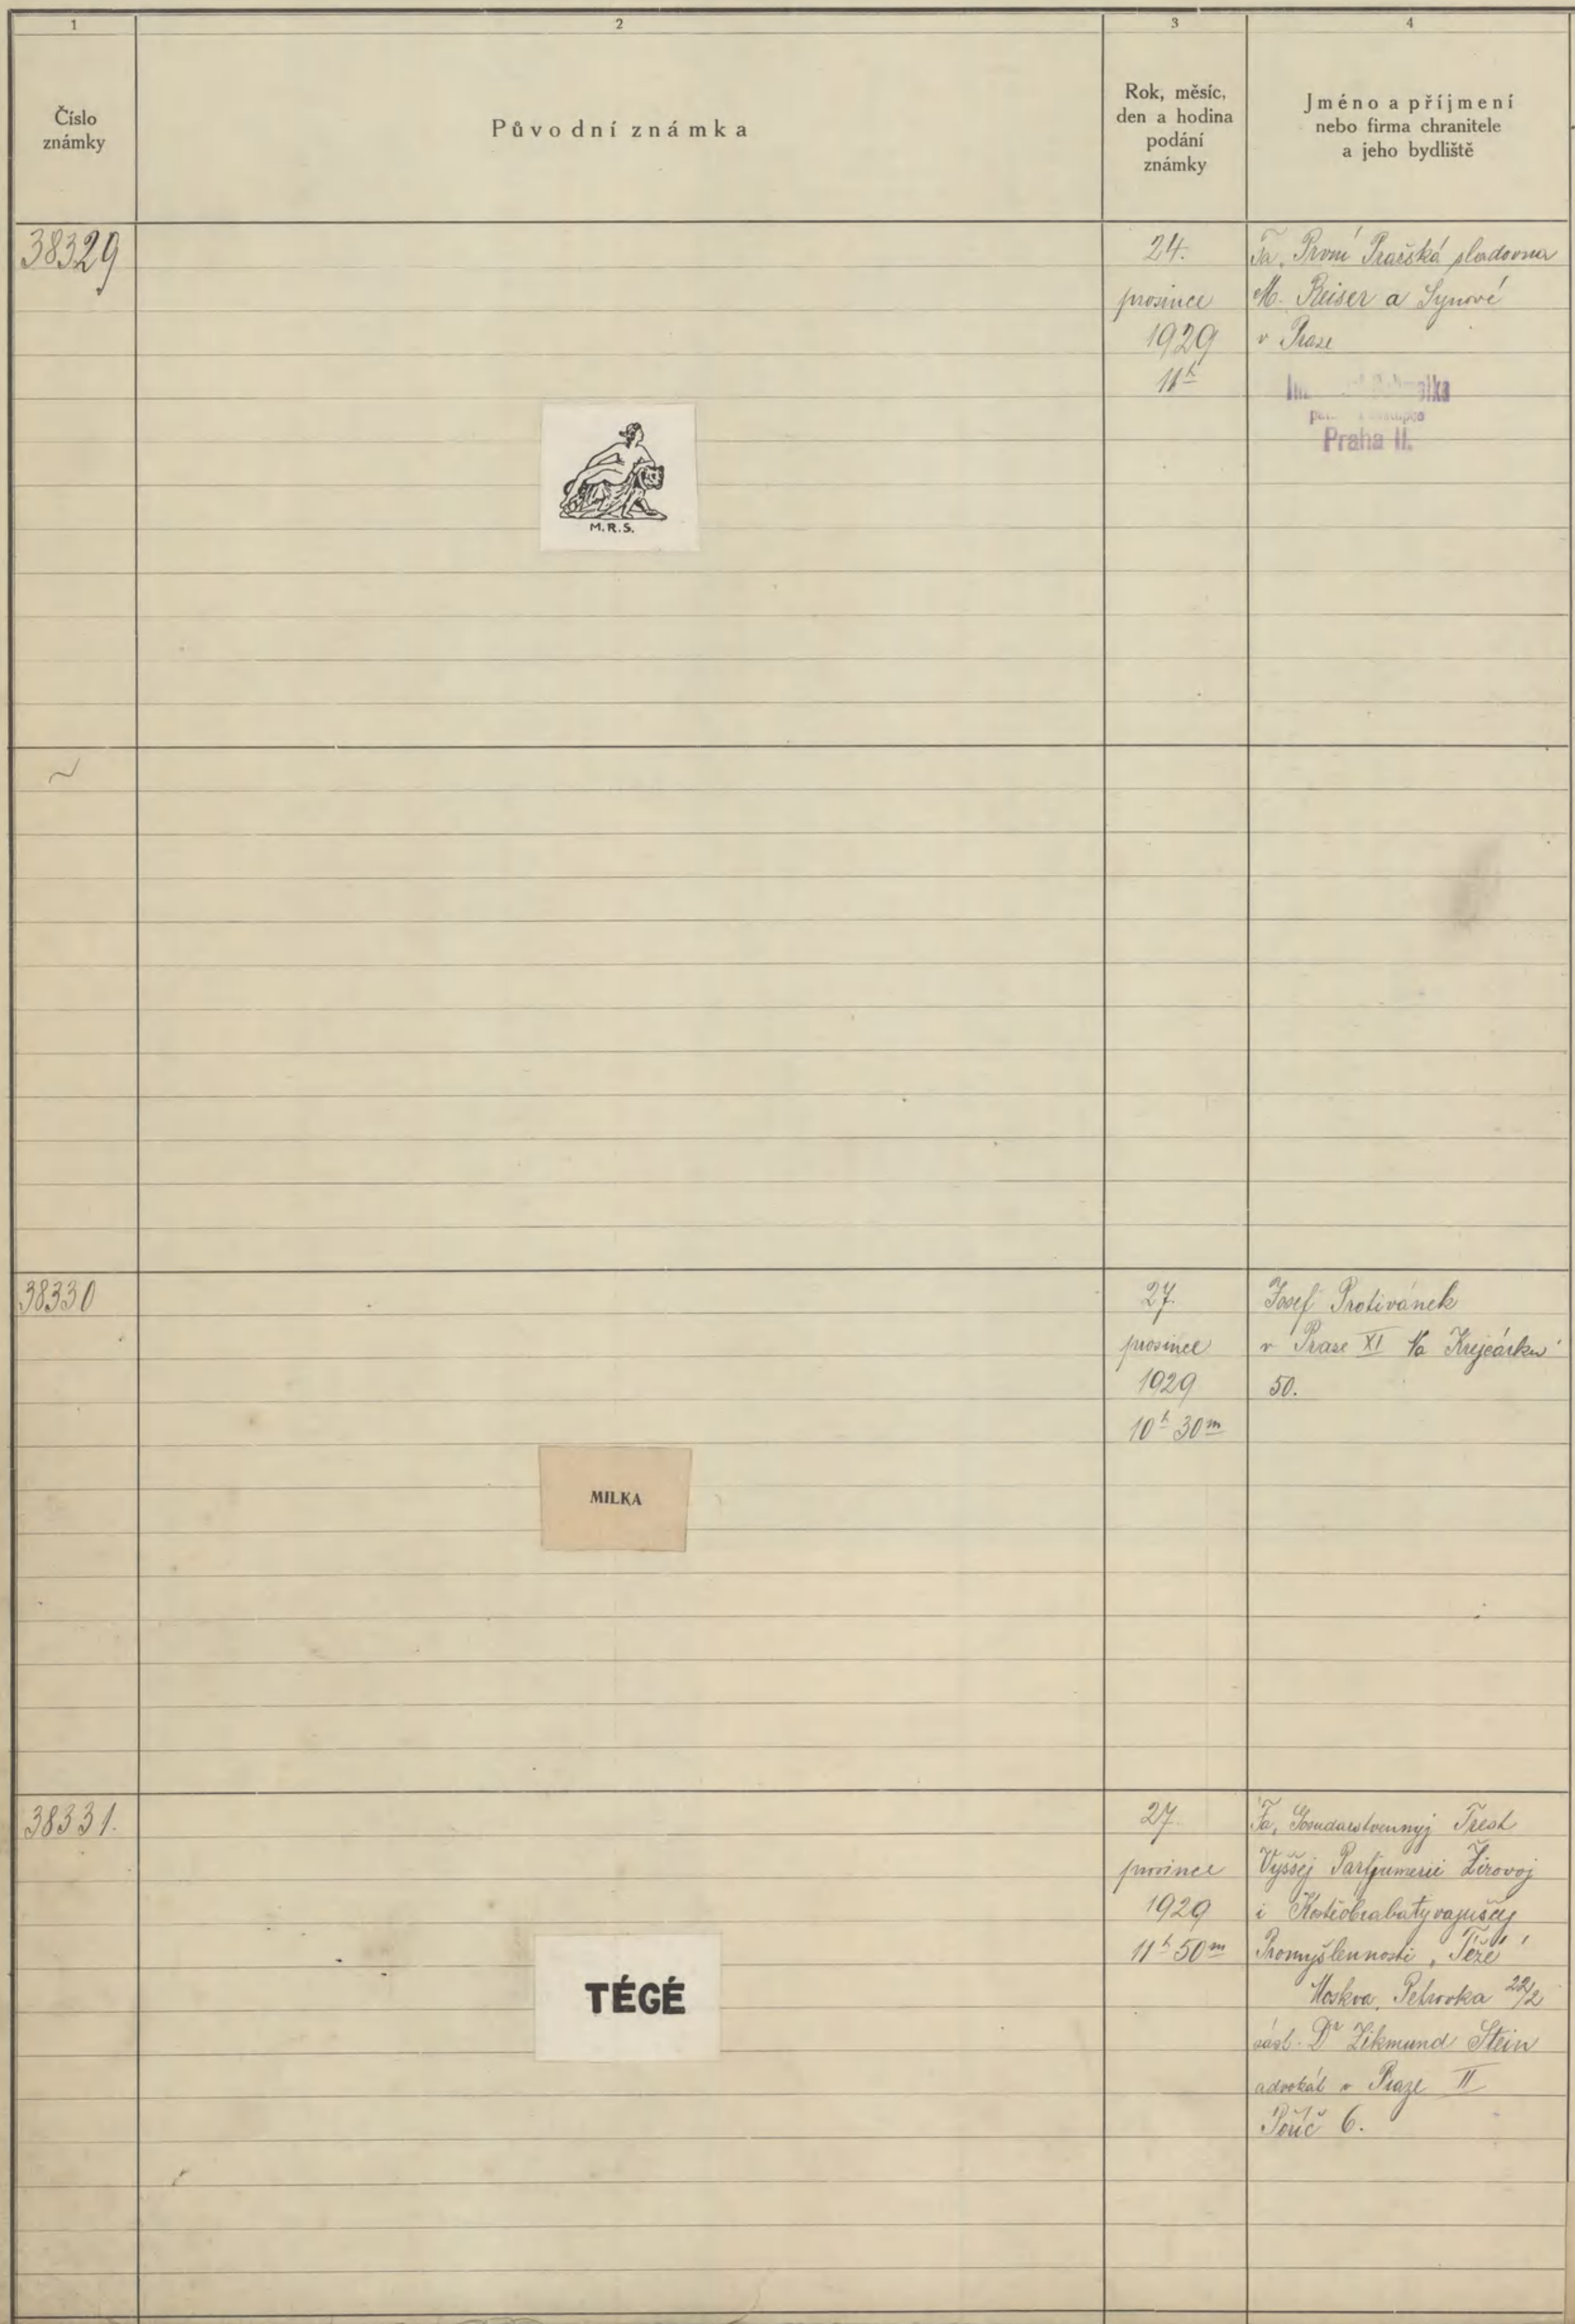 1
2
3
4
Číslo
známky
Původní známka
Rok, měsíc,
den a hodina
podání
známky
Jméno a příjmení
nebo firma chranitele
a jeho bydliště
38329
24.
prosince
1929
11h
Fa. První Pražská sladovna
M. Reiser a Synové
v Praze
Praha II.
M.R.S.
38330
27.
prosince
1929
10h 30m
Josef Protivánek
v Praze XI Na Krejcárku
50.
MILKA
38331.
27.
prosince
1929
11h 50m
Fa. Gosudarstvennyj Trest
Vyššej Parfjumerii Žirovoj
i Kostěobrabatyvajuščej
Promyšlennosti „Težé"
Moskva, Petrovka 22/2
zást. Dr Zikmund Stein
advokát v Praze II
Poříč 6.
TÉGÉ